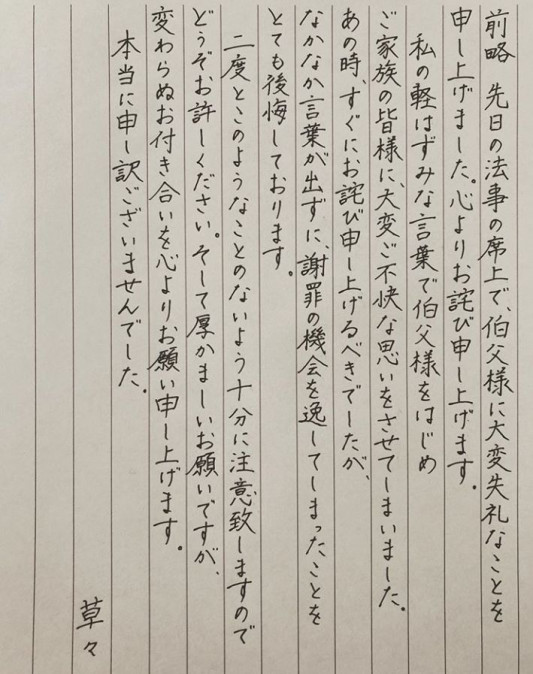 前略　先日の法事の席上で、伯父様に大変失礼なことを
申し上げました。心よりお詫び申し上げます。
私の軽はずみな言葉で伯父様をはじめ
ご家族の皆様に、大変ご不快な思いをさせてしまいました。
あの時、すぐにお詫び申し上げるべきでしたが、
なかなか言葉が出ずに、謝罪の機会を逸してしまったことを
とても後悔しております。
二度とこのようなことのないよう十分に注意致しますので
どうぞお許しください。そして厚かましいお願いですが、
変わらぬお付き合いを心よりお願い申し上げます。
本当に申し訳ございませんでした。
草々